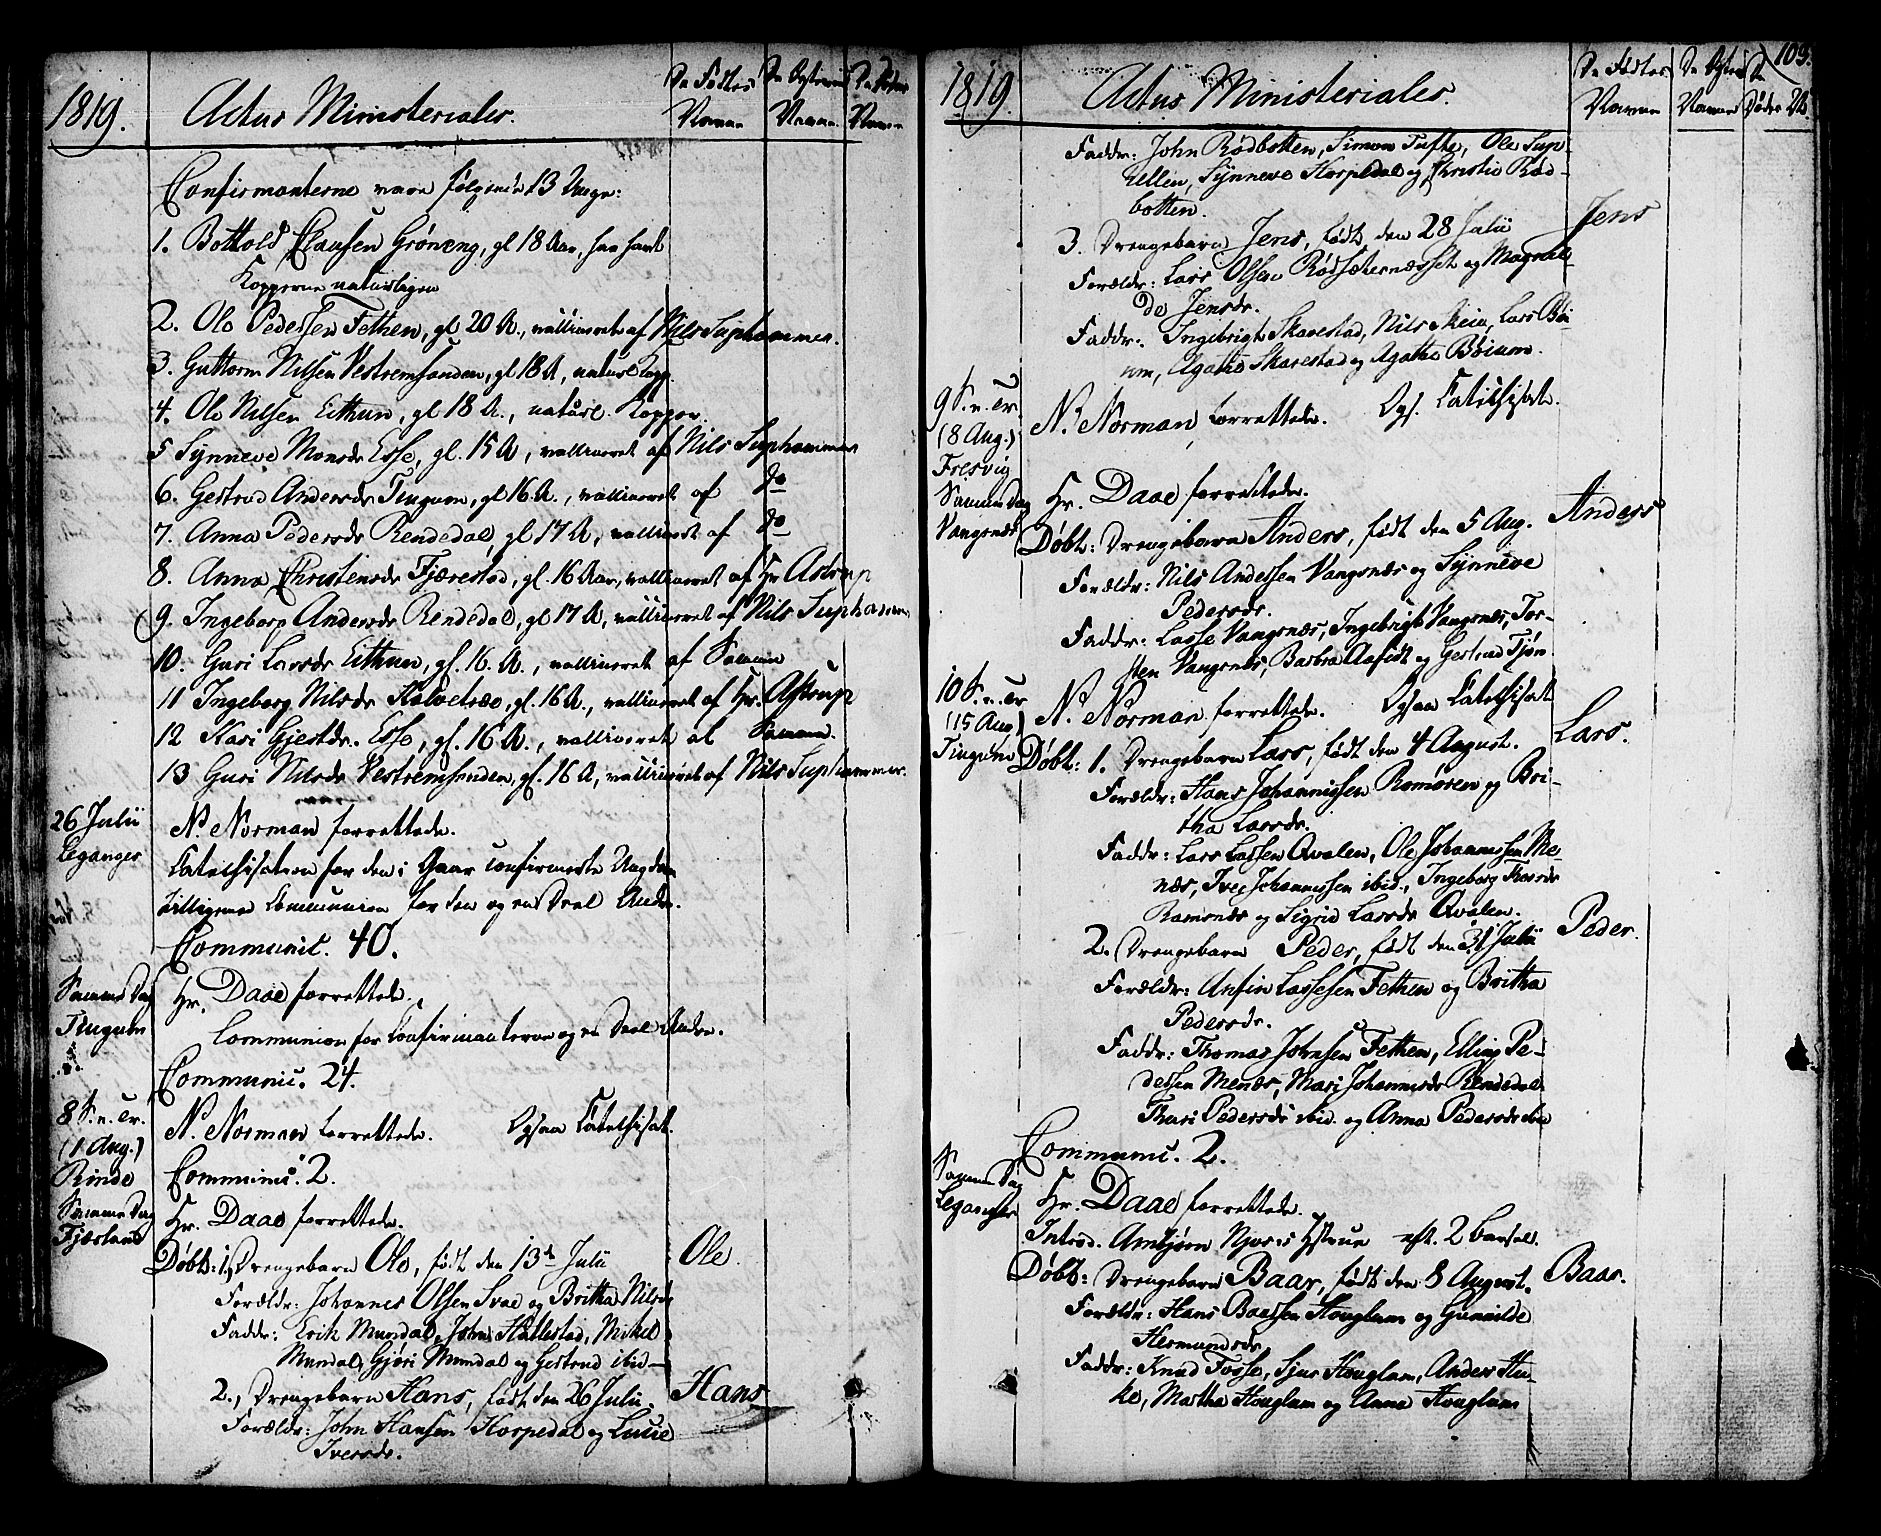 1819. Actus Ministeriales. De Fødtes Navne De Navne De Dødes Navne
Confirmanterne vare følgende 13 Unge:
1. Bottold Clausen Grøneng, gl 18 Aar, har havt
Kopperne naturligen
2. Ole Pedersen Fethen, gl 20 A., vaccineret af Nils Suphammer.
3. Guttorm Nilsen Vestremsanden, gl 18 A, naturl Kopp.
4. Ole Nilsen Eithun, gl 18 A., naturl. Kopper.
5 Synneve Monsdr Esse, gl. 15 A, vaccineret af Nils Suphammer
6. Gertrud Andersdr Tingum, gl 16 A., vaccineret af do
7. Anna Pedersdr Rendedal, gl 17 A, vaccineret af do
8. Anna Christensdr Fjærestad, gl. 16 Aar, vaccineret af Hr Astrup
9. Ingeborg Andersdr Rendedal, gl 17 A, vaccineret af Nils Suphamm
10. Guri Larsdr Eithun, gl. 16 A., vaccineret af Samme
11 Ingeborg Nilsdr Kalvetræe, gl. 16 A., vaccineret af Hr. Astrup
12 Kari Gjestdr. Esse, gl. 16 A., vaccineret af Samme.
13 Guri Nilsdr Vestremsanden, gl. 16 A, vaccineret af Nils Suphammer.
26 Julii N. Norman forrettede.
Leganger Catechisation for den i Gaar confirmerte Ungdom
tilligemed Communion for den og en Deel Andre.
Communic. 40.
Samme Dag Hr. Daae forrettede.
Tingum Communion for Confirmanterne og en Deel Andre.
Communic. 24.
8 S. n. Tr. N. Norman forrettede. Ogsaa Catechisat.
(1 Aug.)
Rinde Communic. 2.
Samme Dag Hr. Daae forrettede.
Fjærland
Døbt: 1, Drengebarn Ole, født den 13de Julii Ole.
Forældr: Johannes Olsen Svae og Britha Nilsdr
Faddr: Erik Mundal, John Hatlestad, Mikel
Mundal, Gjøri Mundal og Gertrud ibid—
2., Drengebarn Hans, født den 26 Julii. Hans
Forældr: John Hansen Horpedal og Lucie
Iversdr.
1819. Actus Ministeriales. De Fødtes Navne De Navne De Døde 103.
Faddr: John Rødbotten, Simon Tufte, Ole Sup-
hellen, Synneve Horpedal og Christie Rød-
botten.
3. Drengebarn Jens, født den 28 Julii Jens
Forældr: Lars Olsen Rødsæternæsset og Magnil-
de Jensdr.
Faddr: Ingebrigt Skarestad, Nils Skeie, Lars Bøi-
um, Agathe Skarestad og Agathe Bøium.
9 S. n. Tr. N. Norman forrettede. Ogs. Catechisat.
(8 Aug.)
Fresvig
Samme Dag Hr. Daae forrettede.
Vangsnæs Døbt: Drengebarn Anders, født den 5 Aug. Anders
Forældr: Nils Andersen Vangsnæs og Synneve
Pedersdr.
Faddr: Lasse Vangsnæs, Ingebrigt Vangsnæs, Tor-
sten Vangsnæs, Barbra Aafedt og Gertrud Tjøn
10 S. n. Tr. N. Norman forrettede. Ogsaa Catechisat
(15 Aug)
Tingum Døbt: 1. Drengebarn Lars, født den 4 August. Lars.
Forældr: Hans Johannissen Ramøren og Bri-
tha Larsdr.
Faddr: Lars Lassen Qvalen, Ole Johannissen Me-
næs, Iver Johannissen ibid., Ingeborg Thordr
Ramsnæs og Sigrid Larsdr Qvalen.
2. Drengebarn Peder, født den 31 Julii Peder.
Forældr: Anfin Lassesen Fethen og Britha
Pedersdr.
Faddr: Thomas Johnsen Fethen, Elling Pe-
dersen Menæs, Mari Johannisdr Rendedal
Thari Pedersdr ibid. og Anna Pedersdr ibid
Communic. 2.
Samme Dag Hr. Daae forrettede.
Leganger
Introd. Ambjørn Njøs's Hstrue eft. 2 Barsel.
Døbt: Drengebarn Baar, født den 8 August. Baar.
Forældr: Hans Baarsen Houglum og Gunnilde
Hermundsdr
Faddr: Knud Fosse, Sjur Houglum, Anders Hu-
ke, Martha Houglum og Anna Houglum